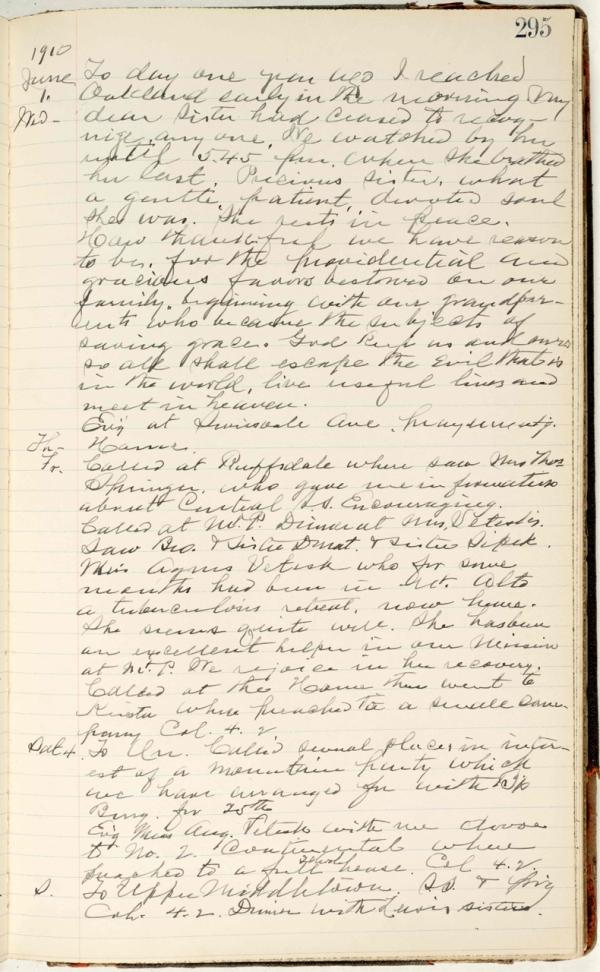 295
1910
June 1. Wed - To day one year ago I reached
Oakland early in the morning. My
dear sister had ceased to recog-
nize any one. We watched by her
until 5.45 p.m. when she breathed
her last. Precious sister, what
a gentle, patient, devoted soul
she was. She rests in peace.
How thankful we have reason
to be, for the providential and
gracious favors bestowed on our
family, beginning with our grandpar-
ents who became the subjects of
saving grace. God keep us and ours
so all shall escape the evil that is
in the world, live useful lives and
meet in heaven.
Ev'g at Swissvale Ave. pray meet'g.
Th- Home.
Fr. Called at Ruffsdale where saw Mrs Thos
Springer, who gave me information
about Central S.S. Encouraging.
Called at Mt. P. Dinner at Mrs. Veteska's.
Saw Bro. & Sister & Sister
Miss Agnes Vetesk who for some
months had been in Mt. Alto
a tuberculosis retreat, now home.
She seems quite well. She has been
an excellent helper in our Mission
at Mt. P. We rejoice in her recovery.
Called at the Home then went to
where preached to a small com-
pany Col. 4. 2
Sat 4. To Un. Called several places in inter-
est of a mountain party which
we have arranged for with
for 25th
Ev'g Miss Aug. Vetesk with me drove
to No. 2. Continental where
preached to a full house. Col 4. 2.
S. To Upper Middletown. S.S. &
Col. 4. 2. Dinner with Lewis sisters.